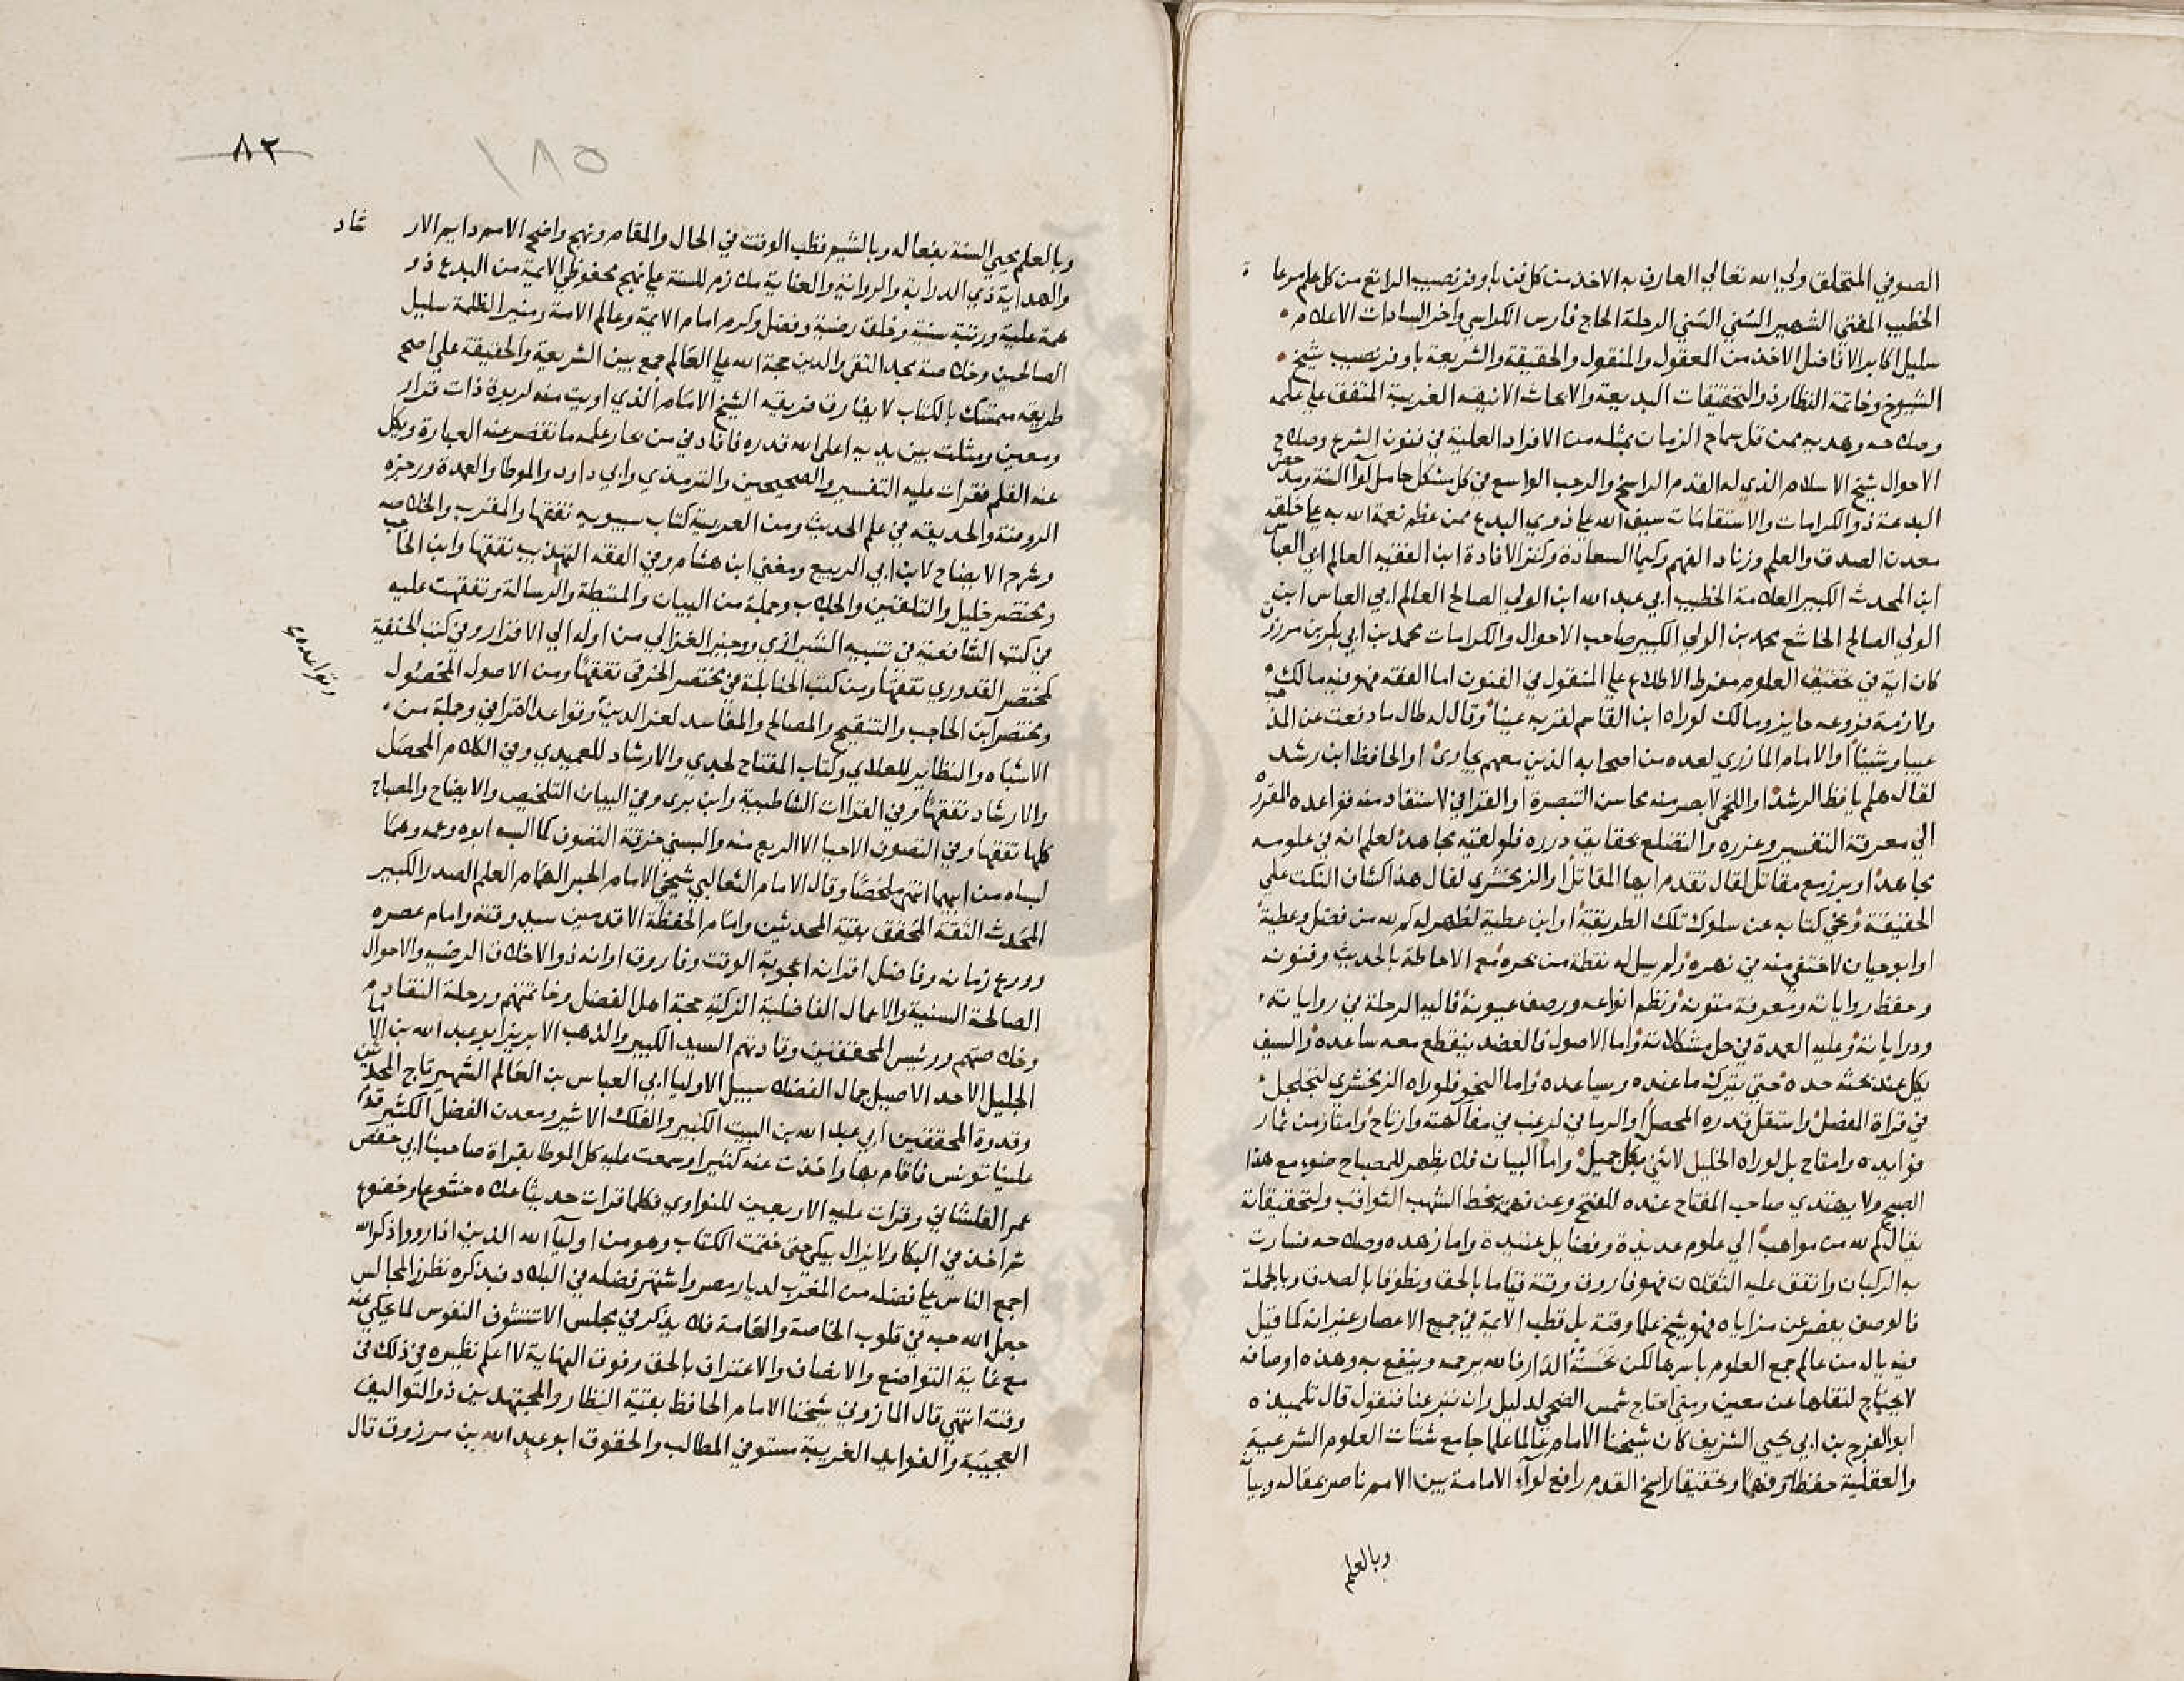 الصوفي المتخلق ولي الله تعالي العارف به الاخذ من كل فن باوفر نصيب الراتع من كل علم مرعا
الخطيب المفتي الشهير السُني السَني الرحلة الحاج فارس الكراسي واخر السادات الاعلام
سليل اكابر الافاضل الاخذ من المعقول والمنقول والحقيقة والشريعة باوفر نصيب شيخ
الشيوخ وخاتمة النظار ذو التحقيقات البديعة والابحاث الانيقه الغريبة المتفق علي علمه
وصلاحه وهديه ممن قل سماح الزمان بمثله من الافراد العلية في فنون الشرع وصلاح
الاحوال شيخ الاسلام الذي له القدم الراسخ والرحب الواسع في كل مشكل حامل لوآ السنة ومدحض
البدعة ذو الكرامات والاستقامات سيف الله علي ذوي البدع ممن عظم نعمة الله به علي خلقه
معدن الصدق والعلم وزناد الفهم وكيميا السعادة وكنز الافادة ابن الفقيه العالم ابي العباس
ابن المحدث الكبير العلامة الخطيب ابي عبد الله ابن الولي الصالح العالم ابي العباس ابن
الولي الصالح الخاشع محمد بن الولي الكبير صاحب الاحوال والكرامات محمد بن ابي بكر بن مرزوق
كان اية في تحقيق العلوم مفرط الاطلاع علي المنقول في الفنون اما الفقه فهو فيه مالك
ولازمة فروعه حايز ومالك لو راه ابن القاسم لقر به عينا وقال له طال ما دفعت عن المذهب
عيبا وشينا او الامام المازري لعده من اصحابه الذين معهم يجاري او الحافظ ابن رشد
لقال هلم يا فظ الرشد او اللخمي لابصر منه محاسن التبصرة او القرافي لاستفاد منه قواعده المقررة
الي معرفة التفسير وغرره والتضلع بحقايق درره فلو لقيه مجاهد لعلم انه في علومه
مجاهد او برز مع مقاتل لقال تقدم ايها المقاتل او الزمخشري لقال هذا كشاف النكت علي
الحقيقة ونحي كتابه عن سلوك تلك الطريقة او ابن عطية لظهر له كم لله من فضل وعطية
او ابو حيان لاختفي منه في نهره ولم يسل له نقطة من بحره مع الاحاطة بالحديث وفنونه
وحفظ رواياته ومعرفة متونه ونظم انواعه ورصف عيونه فاليه الرحلة في رواياته
ودراياته وعليه العمدة في حل مشكلاته واما الاصول فالعضد ينقطع معه ساعده والسيف
يكل عند بحثه حده حتي يترك ما عنده ويساعده واما النحو فلو راه الزمخشري لتجلجل
في قراة المفصل واستقل قدره المحصل او الرماني لرغب في مفاكهته وارتاح وامتاز من ثمار
فوايده وامتاح بل لو راه الخليل لاثني بكل جميل واما البيان فلا يظهر للمصباح ضوء مع هذا
الصبح ولا يهتدي صاحب المفتاح عنده للفتح وعن فهمه تنحط الشهب الثواقب ولتحقيقاته
يقال كم لله من مواهب الي علوم عديدة وفضايل عتيدة واما زهده وصلاحه فسارت
به الركبان واتفق عليه الثقلان فهو فاروق وقته قياما بالحق ونطوقا بالصدق وبالجملة
فالوصف يقصر عن مزاياه فهو شيخ علما وقته بل قطب الايمة في جميع الاعصار غير انه كما قيل
فيه يا له من عالم جمع العلوم باسرها لكن الله يرحمه وينفع به وهذه اوصافه
لا يحتاج لنقلها عن معين ومتي احتاج شمس الضحي لدليل وان نتبرعنا فنقول قال تلميذه
ابو الفرج بن ابي يحيي الشريف كان شيخنا الامام عالما علما جامع شتات العلوم الشرعية
والعقلية حفظا وفهما وتحقيقا راسخ القدم رافع لوآء الامامة بين الامم ناصر بمقاله وبيانه
وبالعلم
٨٢
١٨٥
وبالعلم يحيي السنة بفعاله وبالشيم قطب الوقت في الحال والمقام ونهج واضح الامم دايم الارشاد
والهداية ذي الدراية والرواية والعناية ملازم للسنة علي نهج محفوظي الايمة من البدع ذو
همة علية ورتبة سنية وخلق رضية وفضل وكرم امام الايمة وعالم الامة ومنير الظلمة سليل
الصالحين وخلاصة مجد التقي والدين حجة الله علي العالم جمع بين الشريعة والحقيقة علي اصح
طريقه متمسك بالكتاب لا يفارق فريقه الشيخ الامام الذي اويت منه لربوة ذات قرار
ومعين ومثلت بين يديه اعلي الله قدره فافاد في من بحار علمه ما تقصر عنه العبارة ويكل
عنه القلم فقرات عليه التفسير والصحيحين والترمذي وابي داود والموطا والعمدة ورجزه
الروضة والحديقه في علم الحديث ومن العربية كتاب سيبويه تفقها والمقرب والخلاصه
وشرح الايضاح لابن ابي الربيع ومغني ابن هشام وفي الفقه التهذيب تفقها وابن الحاجب
ومختصر خليل والتلقين والجلاب وجملة من البيان والمتيطة والرسالة وتفقهت عليه
في كتب الشافعية في تنبيه الشيرازي ووجيز الغزالي من اوله الي الاقرار وفي كتب الحنفية
كمختصر القدوري تفقها ومن كتب الحنابلة في مختصر الخرقي تفقها ومن الاصول المحصول
ومختصر ابن الحاجب والتنقيح والمصالح والمفاسد لعز الدين وقواعد القرافي وجملة من
وقواعده
الاشباه والنظاير للعلاي وكتاب المفتاح لجدي والارشاد للعميدي وفي الكلام المحصل
والارشاد تفقها وفي القراات الشاطبية وابن بري وفي البيان التلخيص والايضاح والمصباح
كلها تفقها وفي التصوف الاحيا الا الربع منه والبسني خرقة التصوف كما البسه ابوه وعمه وهما
لبساه من ابيهما انتهي ملخصا وقال الامام الثعالبي شيخي الامام الحبر الهمام العلم الصدر الكبير
المحدث الثقة المحقق بقية المحدثين وامام الحفظة الاقدمين سيد وقته وامام عصره
وورع زمانه وفاضل اقرانه اعجوبة الوقت وفاروق اوانه ذو الاخلاق الرضيه والاحوال
الصالحة السنية والاعمال الفاضلية الزكية حجة اهل الفضل وخاتمتهم ورحلة النقاد
وخلاصتهم ورئيس المحققين وقادتهم السيد الكبير والذهب الابريز ابو عبد الله بن الامام
الجليل الاحد الاصيل جمال الفضلا سبيل الاوليا ابي العباس بن العالم الشهير تاج المحدثين
وقدوة المحققين ابي عبد الله بن البيت الكبير والفلك الاشير ومعدن الفضل الكثير قدم
علينا تونس فاقام بها واخذت عنه كثيرا وسمعت عليه كل الموطا بقراة صاحبنا ابي حفص
عمر القلشاني وقرات عليه الاربعين للنواوي فكلما قرات حديثا علاه خشوع وخضوع
ثم اخذ في البكا ولا يزال يبكي حتي ختمت الكتاب وهو من اوليآ الله الذين اذا رووا ذكر الله
اجمع الناس علي فضله من المغرب لديار مصر واشتهر فضله في البلاد فبذكره تطرز المجالس
جعل الله حبه في قلوب الخاصة والعامة فلا يذكر في مجلس الا تتشوف النفوس لما يحكي عنه
مع غاية التواضع والانصاف والاعتراف بالحق وفوق النهاية لا اعلم نظيره في ذلك في
وقته انتهي قال المازوني شيخنا الامام الحافظ بقية النظار والمجتهدين ذو التواليف
العجيبة والفوايد الغريبة مستوفي المطالب والحقوق ابو عبد الله بن مرزوق قال